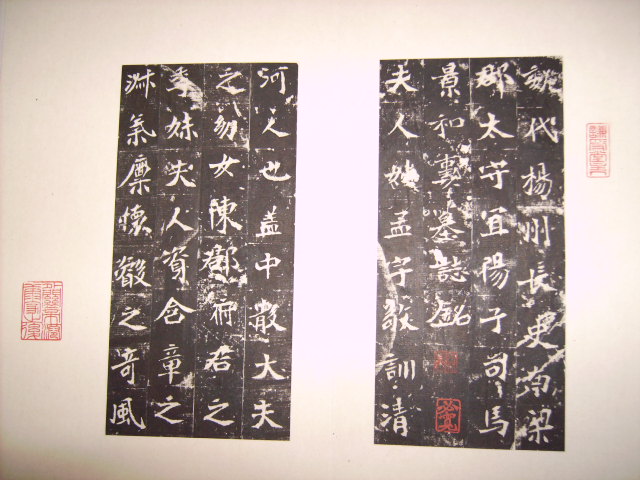 魏代楊州長史南梁
郡太守宜陽子司馬
景和妻墓誌銘
夫人姓孟字敬訓清
河人也盖中散大夫
之幼女陳郡府君之
季妹夫人資含章之
淑氣稟懷叡之奇風